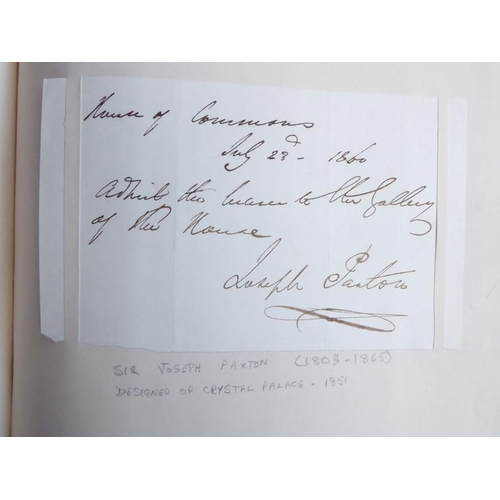 House of Commons
July 23d - 1860
Admit the bearer to the Gallery
of the House
Joseph Paxton
SIR JOSEPH PAXTON (1803-1865)
DESIGNER OF CRYSTAL PALACE - 1851